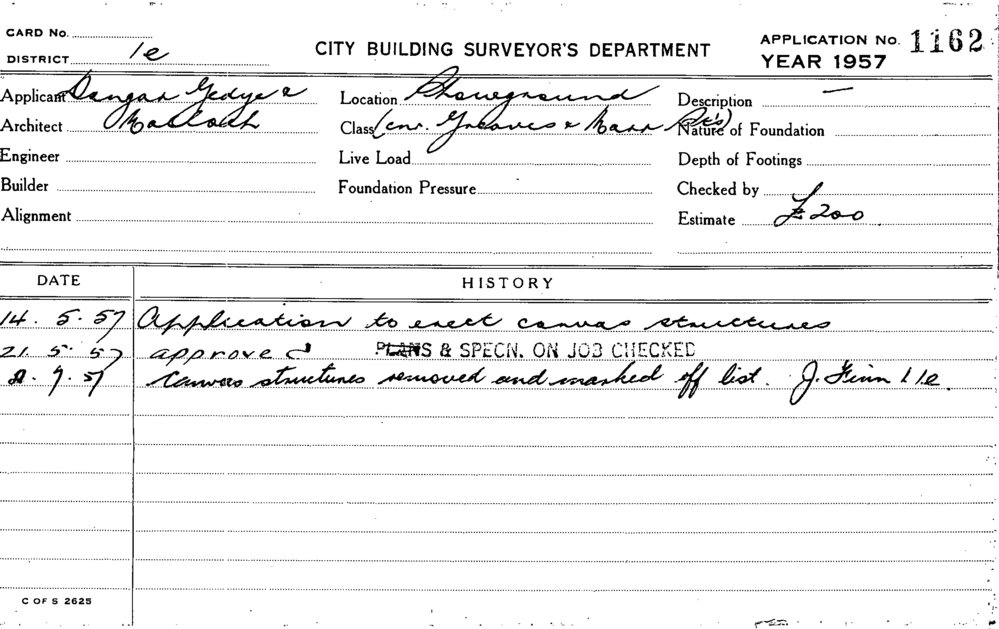 CARD No.
DISTRICT 1e
CITY BUILDING SURVEYOR'S DEPARTMENT
APPLICATION No. 1162
YEAR 1957
Applicant Dangar Gedye &
Architect Malloch
Engineer
Builder
Alignment
Location Showground
Class (cnr. Greaves & Marr Rds)
Live Load
Foundation Pressure
Description —
Nature of Foundation
Depth of Footings
Checked by
Estimate £200
DATE HISTORY
14. 5. 57 Application to erect canvas structures
21. 5. 57 approved PLANS & SPECN. ON JOB CHECKED
9. 57 Canvas structures removed and marked off list. J. Finn 1e.
C OF S 2625